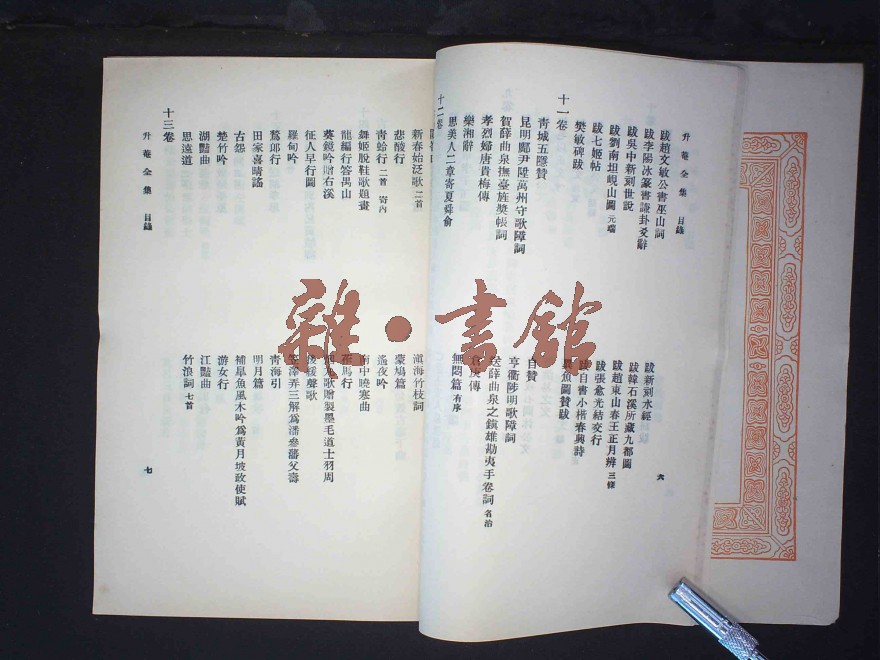 升菴全集 目錄
跋趙文敏公書巫山詞
跋李陽冰篆書謙卦爻辭
跋吳中新刻世說
跋劉南坦峴山圖 元瑞
跋七姬帖
樊敏碑跋
跋新刻水經
跋韓石溪所藏九都圖
跋趙東山春王正月辨 三條
跋張愈光結交行
跋自書小楷春興詩
魚圖贊跋
十一卷
靑城五隱贊
昆明鄺尹陞萬州守歌障詞
賀薛曲泉撫臺旌獎帳詞
孝烈婦唐貴梅傳
自贊
亨衢陟明歌障詞
送薛曲泉之鎮雄勘夷手卷詞 名治
十二卷
樂湘辭
思美人二章寄夏舜俞
無悶篇 有序
六
升菴全集 目錄
新春始泛歌 二首
悲酸行
靑蛤行 二首 寄內
舞姬脫鞋歌題畫
龍編行答禺山
葵鏡吟贈右溪
征人早行圖
羅甸吟
鷲郎行
田家喜晴謠
古怨
楚竹吟
湖豔曲
思遠道
滇海竹枝詞
蒙鳩篇
遙夜吟
南中曉寒曲
馬行
歌贈製墨毛道士羽周
後緩聲歌
笠澤弄三解爲潘參藩父壽
靑海引
明月篇
補皐魚風木吟爲黃月坡政使賦
游女行
江豔曲
竹浪詞 七首
十三卷
七
雜·書館